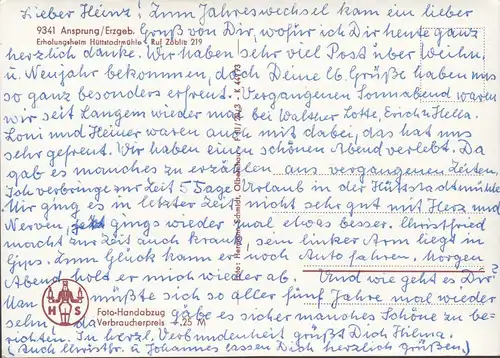 Lieber Heinz! Zum Jahreswechsel kam ein lieber
9341 Ansprung/Erzgeb.
Gruß von Dir, wofür ich Dir heute ganz
Erholungsheim Hüttstadtmühle • Ruf Zöblitz 219
herzlich danke. Wir haben sehr viel Post über Weihn.
u. Neujahr bekommen, doch Deine lb. Grüße haben uns
so ganz besonders erfreut. Vergangenen Sonnabend waren
wir seit Langem wieder mal bei Walther Lotte, Erich u. Hella.
Loni und Heiner waren auch mit dabei, das hat uns
sehr gefreut. Wir haben einen schönen Abend verlebt. Da
gab es manches zu erzählen aus vergangenen Zeiten.
Ich verbringe zur Zeit 5 Tage Urlaub in der Hüttstadtmühle
Mir ging es in letzter Zeit nicht sehr gut mit Herz und
Nerven, jetzt gings wieder mal etwas besser. Christfried
macht zur Zeit auch krank, sein linker Arm liegt in
Gips. Zum Glück kann er noch Auto fahren. Morgen
Abend holt er mich wieder ab. Und wie geht es Dir?
Man müßte sich so aller fünf Jahre mal wieder
sehn! da gäbe es sicher manches Schöne zu be-
richten. In herzl. Verbundenheit grüßt Dich Hilma.
(Auch Christfr. u. Johannes lassen Dich herzlich grüßen.)
H S
Foto-Handabzug
Verbraucherpreis -,25 M